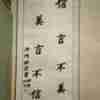 信言不美
美言不信